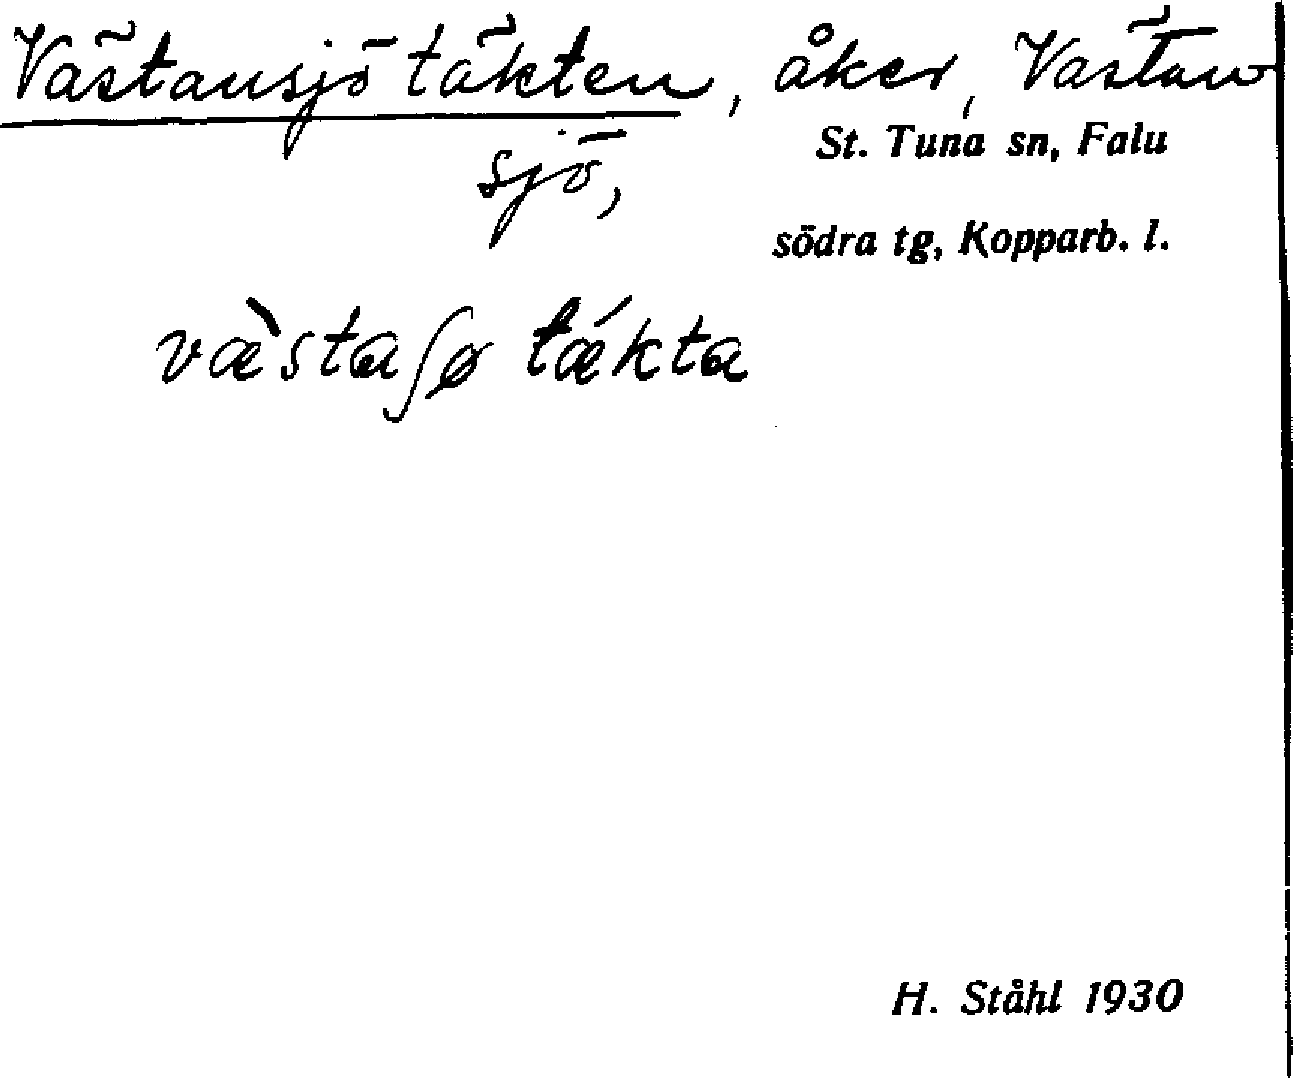 Västansjö täkten, åker, Västan
sjö,
St. Tuna sn, Falu
södra tg, Kopparb. l.
væ̀staʃø tǽkta
H. Ståhl 1930